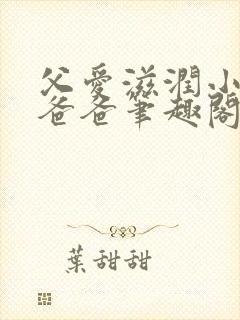 父愛滋潤小
爸爸筆趣閣
葉甜甜